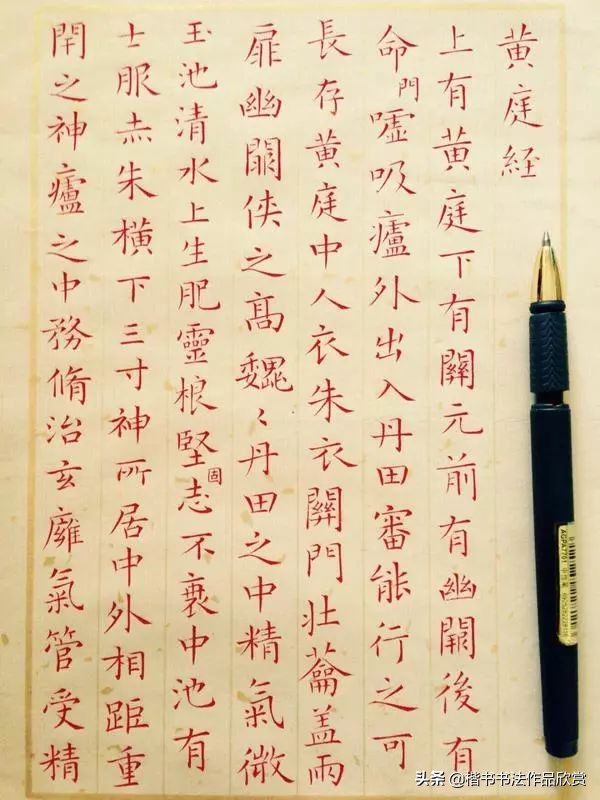 黄庭経
上有黄庭下有關元前有幽闕後有
命門噓吸廬外出入丹田審能行之可
長存黄庭中人衣朱衣關門壮蘥盖兩
扉幽闕侠之髙巍〻丹田之中精氣微
玉池清水上生肥靈根堅固志不衰中池有
士服赤朱橫下三寸神所居中外相距重
閇之神廬之中務脩治玄廱氣管受精
AGPA7701
头条 @楷书书法作品欣赏